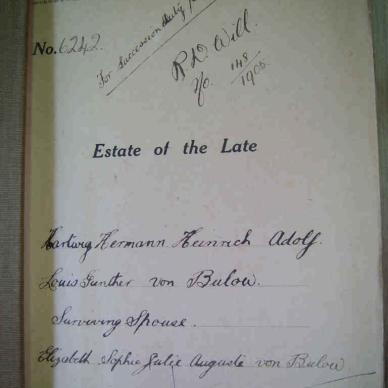 No. 6242.
For Succession Duty
R D Will.
No. 148
1905
Estate of the Late
Hartwig Hermann Heinrich Adolf.
Louis Gunther von Bulow.
Surviving Spouse.
Elizabeth Sophie Julie Auguste von Bulow